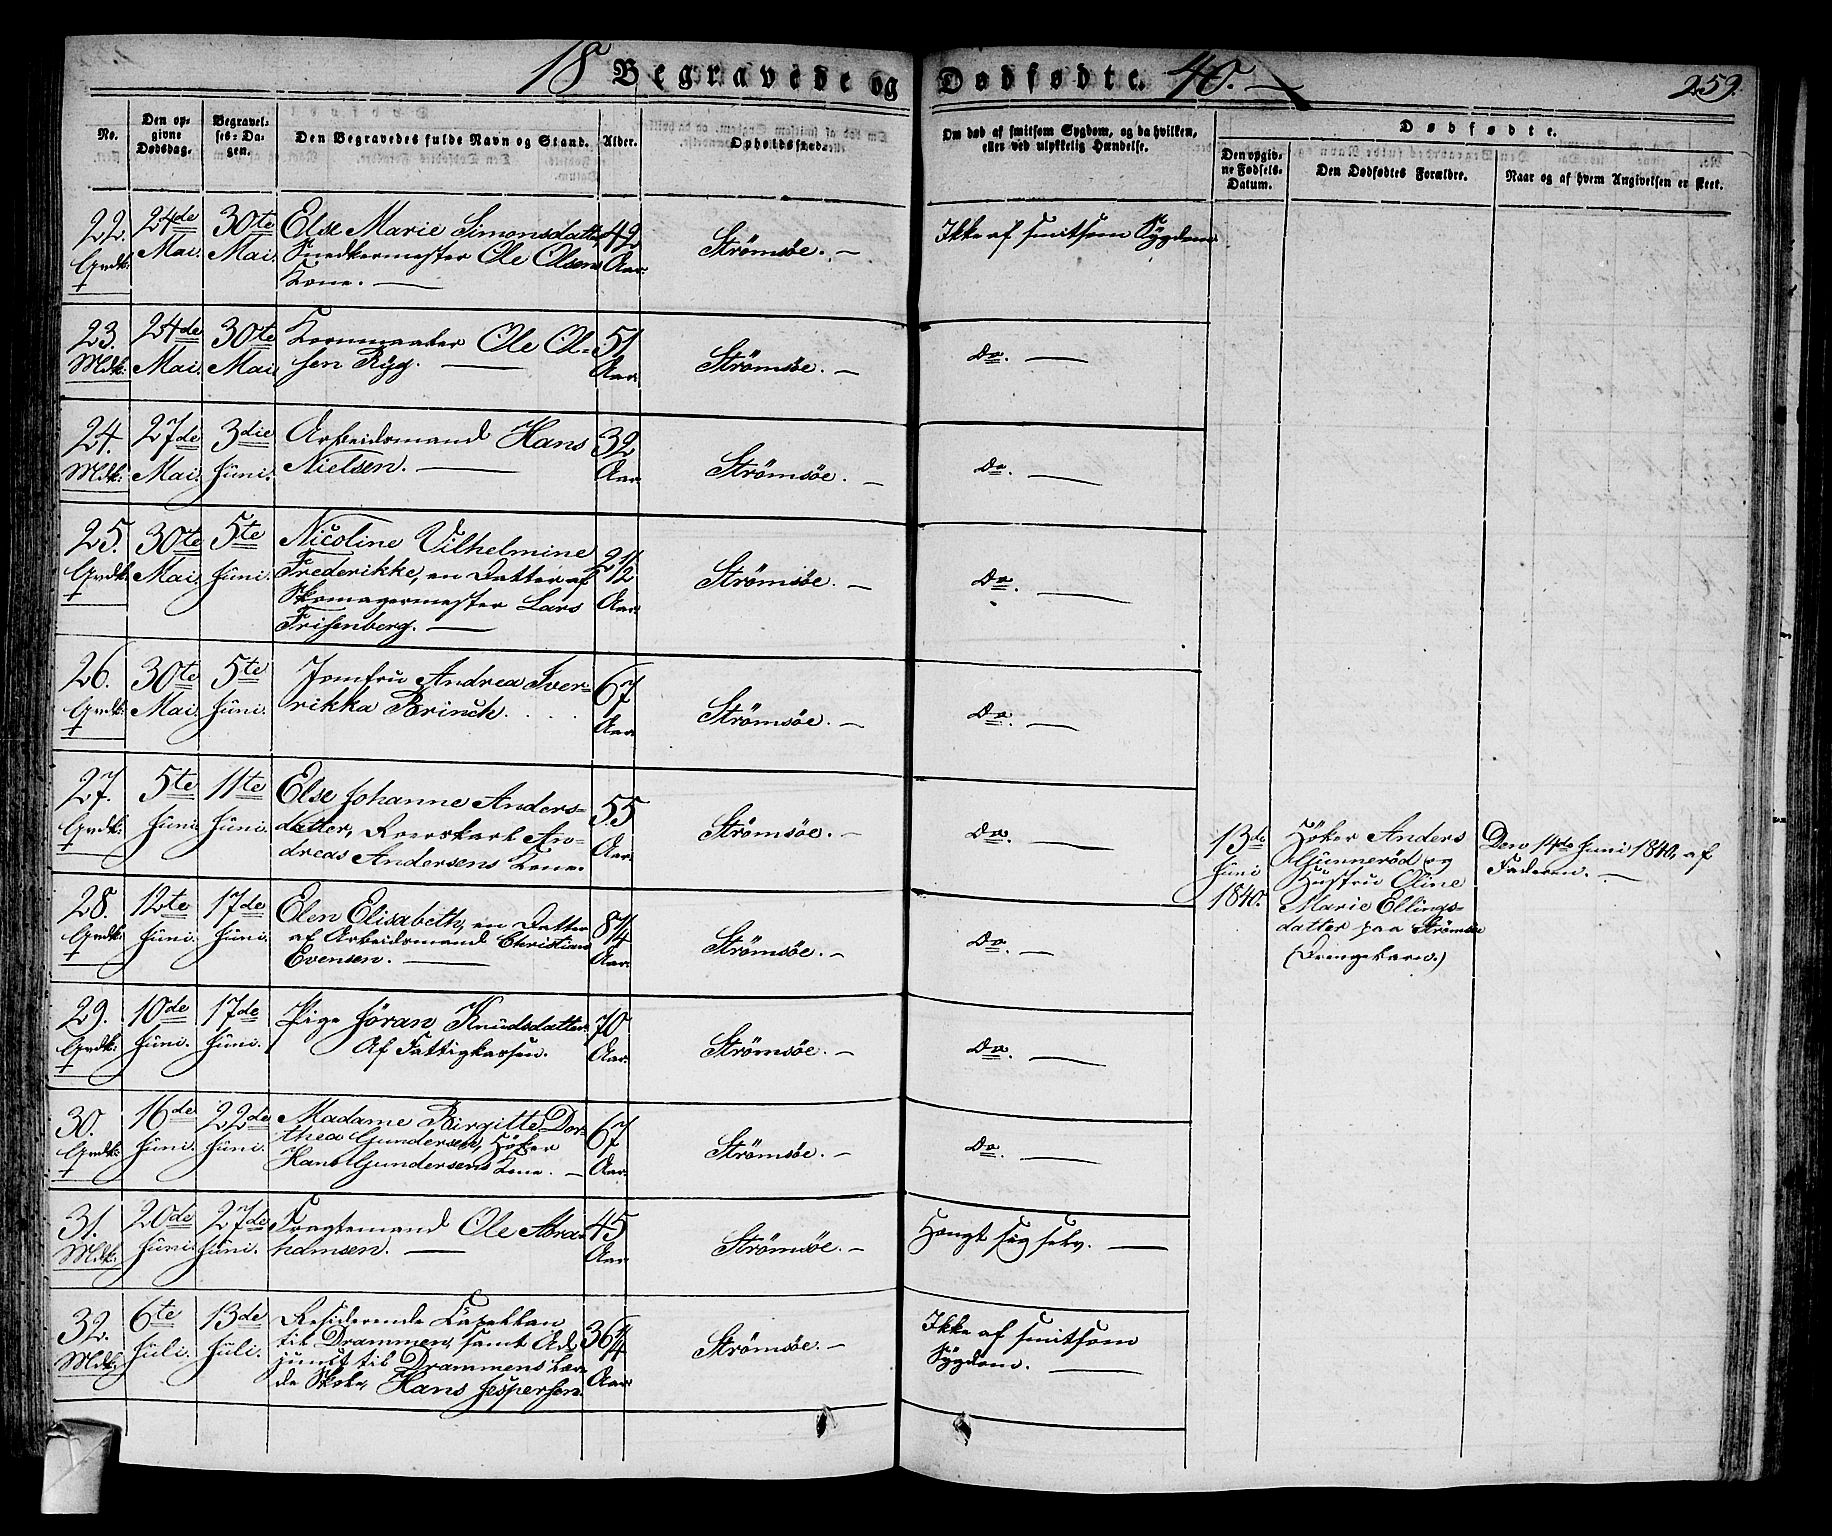 18 Begravede og Dødfødte. 40. 259.
No.
Den op-
givne
Dødsdag.
Begravel-
ses-Da-
gen.
Den Begravedes fulde Navn og Stand.
Alder.
Opholdssted.
Om død af smitsom Sygdom, og da hvilken,
eller ved ulykkelig Hændelse.
Dødfødte.
Den opgiv-
ne Fødsels-
Datum.
Den Dødfødtes Forældre.
Naar og af hvem Angivelsen er skeet.
22. Qvdk:
24de Mai.
30te Mai.
Else Marie Simonsdatter
Snedkermester Ole Olsens
Kone.
49 Aar.
Strömsöe.
Ikke af smitsom Sygdom
23. Mdk:
24de Mai.
30te Mai.
Kornmaaler Ole Ol-
sen Ryg.
51 Aar.
Strömsöe.
Do.
24. Mdk:
27de Mai.
3die Juni.
Arbeidsmand Hans
Nielsen.
32 Aar
Strömsöe.
Do.
25. Qvdk:
30te Mai.
5te Juni.
Nicoline Vilhelmine
Frederikke, en Datter af
Skomagermester Lars
Frisenberg.
2 1/2 Aar.
Strömsöe.
Do.
26. Qvdk:
30te Mai.
5te Juni.
Jomfru Andrea Iver-
rikka Brinck.
67 Aar
Strömsöe.
Do.
27. Qvdk:
5te Juni.
11te Juni.
Else Johanne Anders-
datter, Roerskarl An-
dreas Andersens Kone.
55 Aar.
Strömsöe.
Do.
13de
Juni
1840.
Höker Anders
Gunneröd og
Hustru Oline
Marie Ellings-
datter paa Strömsöe
(Drengebarn.)
Den 14de Juni 1840, af
Faderen.
28. Qvdk:
12te Juni.
17de Juni.
Elen Elisabeth, en Datter
af Arbeidsmand Christian
Evensen.
8 1/4 Aar.
Strömsöe.
Do.
29. Qvdk:
10de Juni.
17de Juni.
Pige Jöran Knudsdatter.
Af Fattigkassen.
70 Aar.
Strömsöe.
Do.
30. Qvdk:
16de Juni.
22de Juni.
Madame Birgitte Dor-
thea Gundersen, Höker
Hans Gundersens Kone.
67 Aar.
Strömsöe.
Do.
31. Mdk:
20de Juni.
27de Juni.
Fragtemand Ole Abra-
hamsen.
45 Aar
Strömsöe.
Hængt sig selv.
32. Mdk:
6te Juli.
13de Juli.
Residerende Capellan
til Drammen, samt Ad-
junct til Drammens Lær-
de Skole, Hans Jespersen.
36 1/4 Aar.
Strömsöe.
Ikke af smitsom
Sygdom.